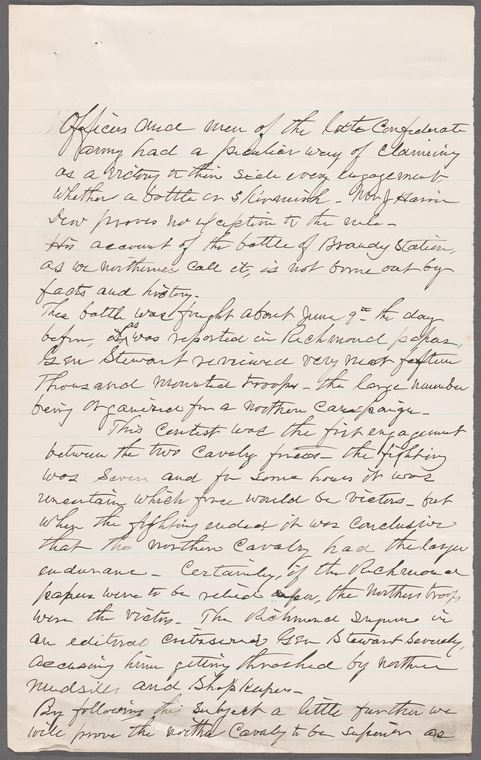 Officers and men of the late Confederate
army had a peculiar way of claiming
as a victory to thier side every engagement
whether a battle or skirmish - J Harvie
Dew proves no exception to the rule -
His account of the battle of Brandy Station,
as we northerners call it, is not borne out by
facts and history.
This battle was fought about June 9th the day
before, as was reported in Richmond papers,
Gen Stewart reviewed very near fifteen
Thousand mounted troops - the large number
being organized for a northern campaign -
This contest was the first engagement
between the two Cavalry forces - the fighting
was severe and for some hours it was
uncertain which force would be victors - but
when the fighting ended it was conclusive
that the northern Cavalry had the larger
endurance - Certainly, if the Richmond
papers were to be relied upon, the northern troops
were the victors - The Richmond Enquirer in
an editoral critisised Gen Stewart severely,
accusing him geting thrashed by northern
mudsills and Shop Keepers -
By following this subject a little further we
will prove the northern Cavalry to be superior as